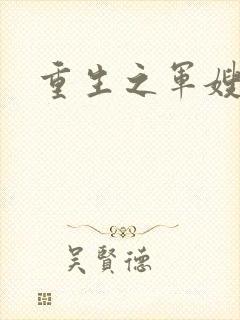 重生之軍嫂
吳賢德